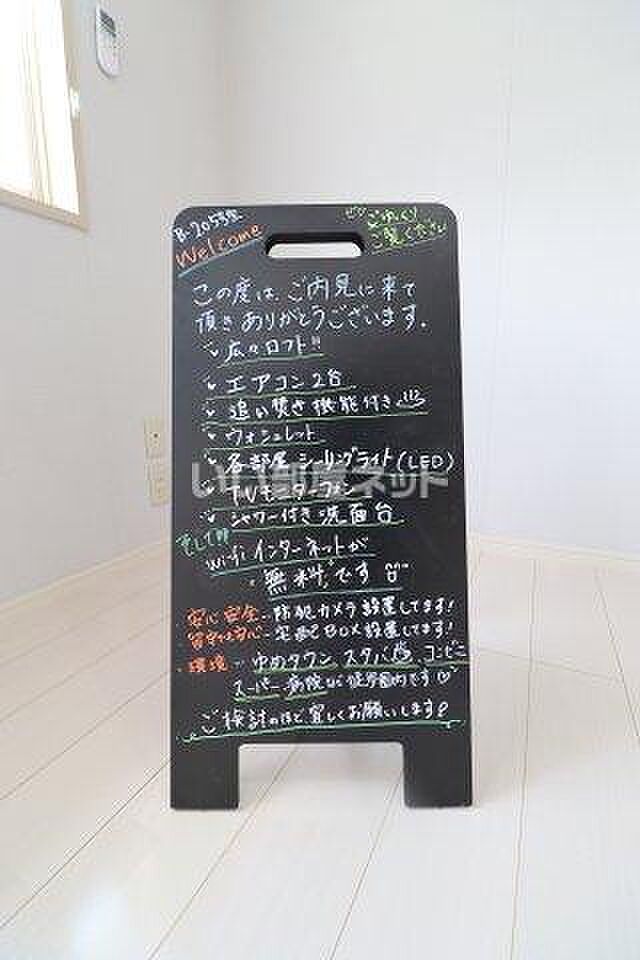 B-205号室
Welcome
ごゆっくり
ご覧ください
この度は、ご内見に来て
頂きありがとうございます.
広々ロフト!!
エアコン2台
追い焚き機能付き
ウォシュレット
各部屋シーリングライト(LED)
TVモニターフォン
いい部屋ネット
シャワー付き洗面台
そして!!
wifiインターネットが
無料です
・安心安全…防犯カメラ設置してます!
留守も安心…宅配BOX設置してます!
・環境…ゆめタウン スタバ コンビニ
スーパー 病院など徒歩圏内です
ご検討のほど宜しくお願いします